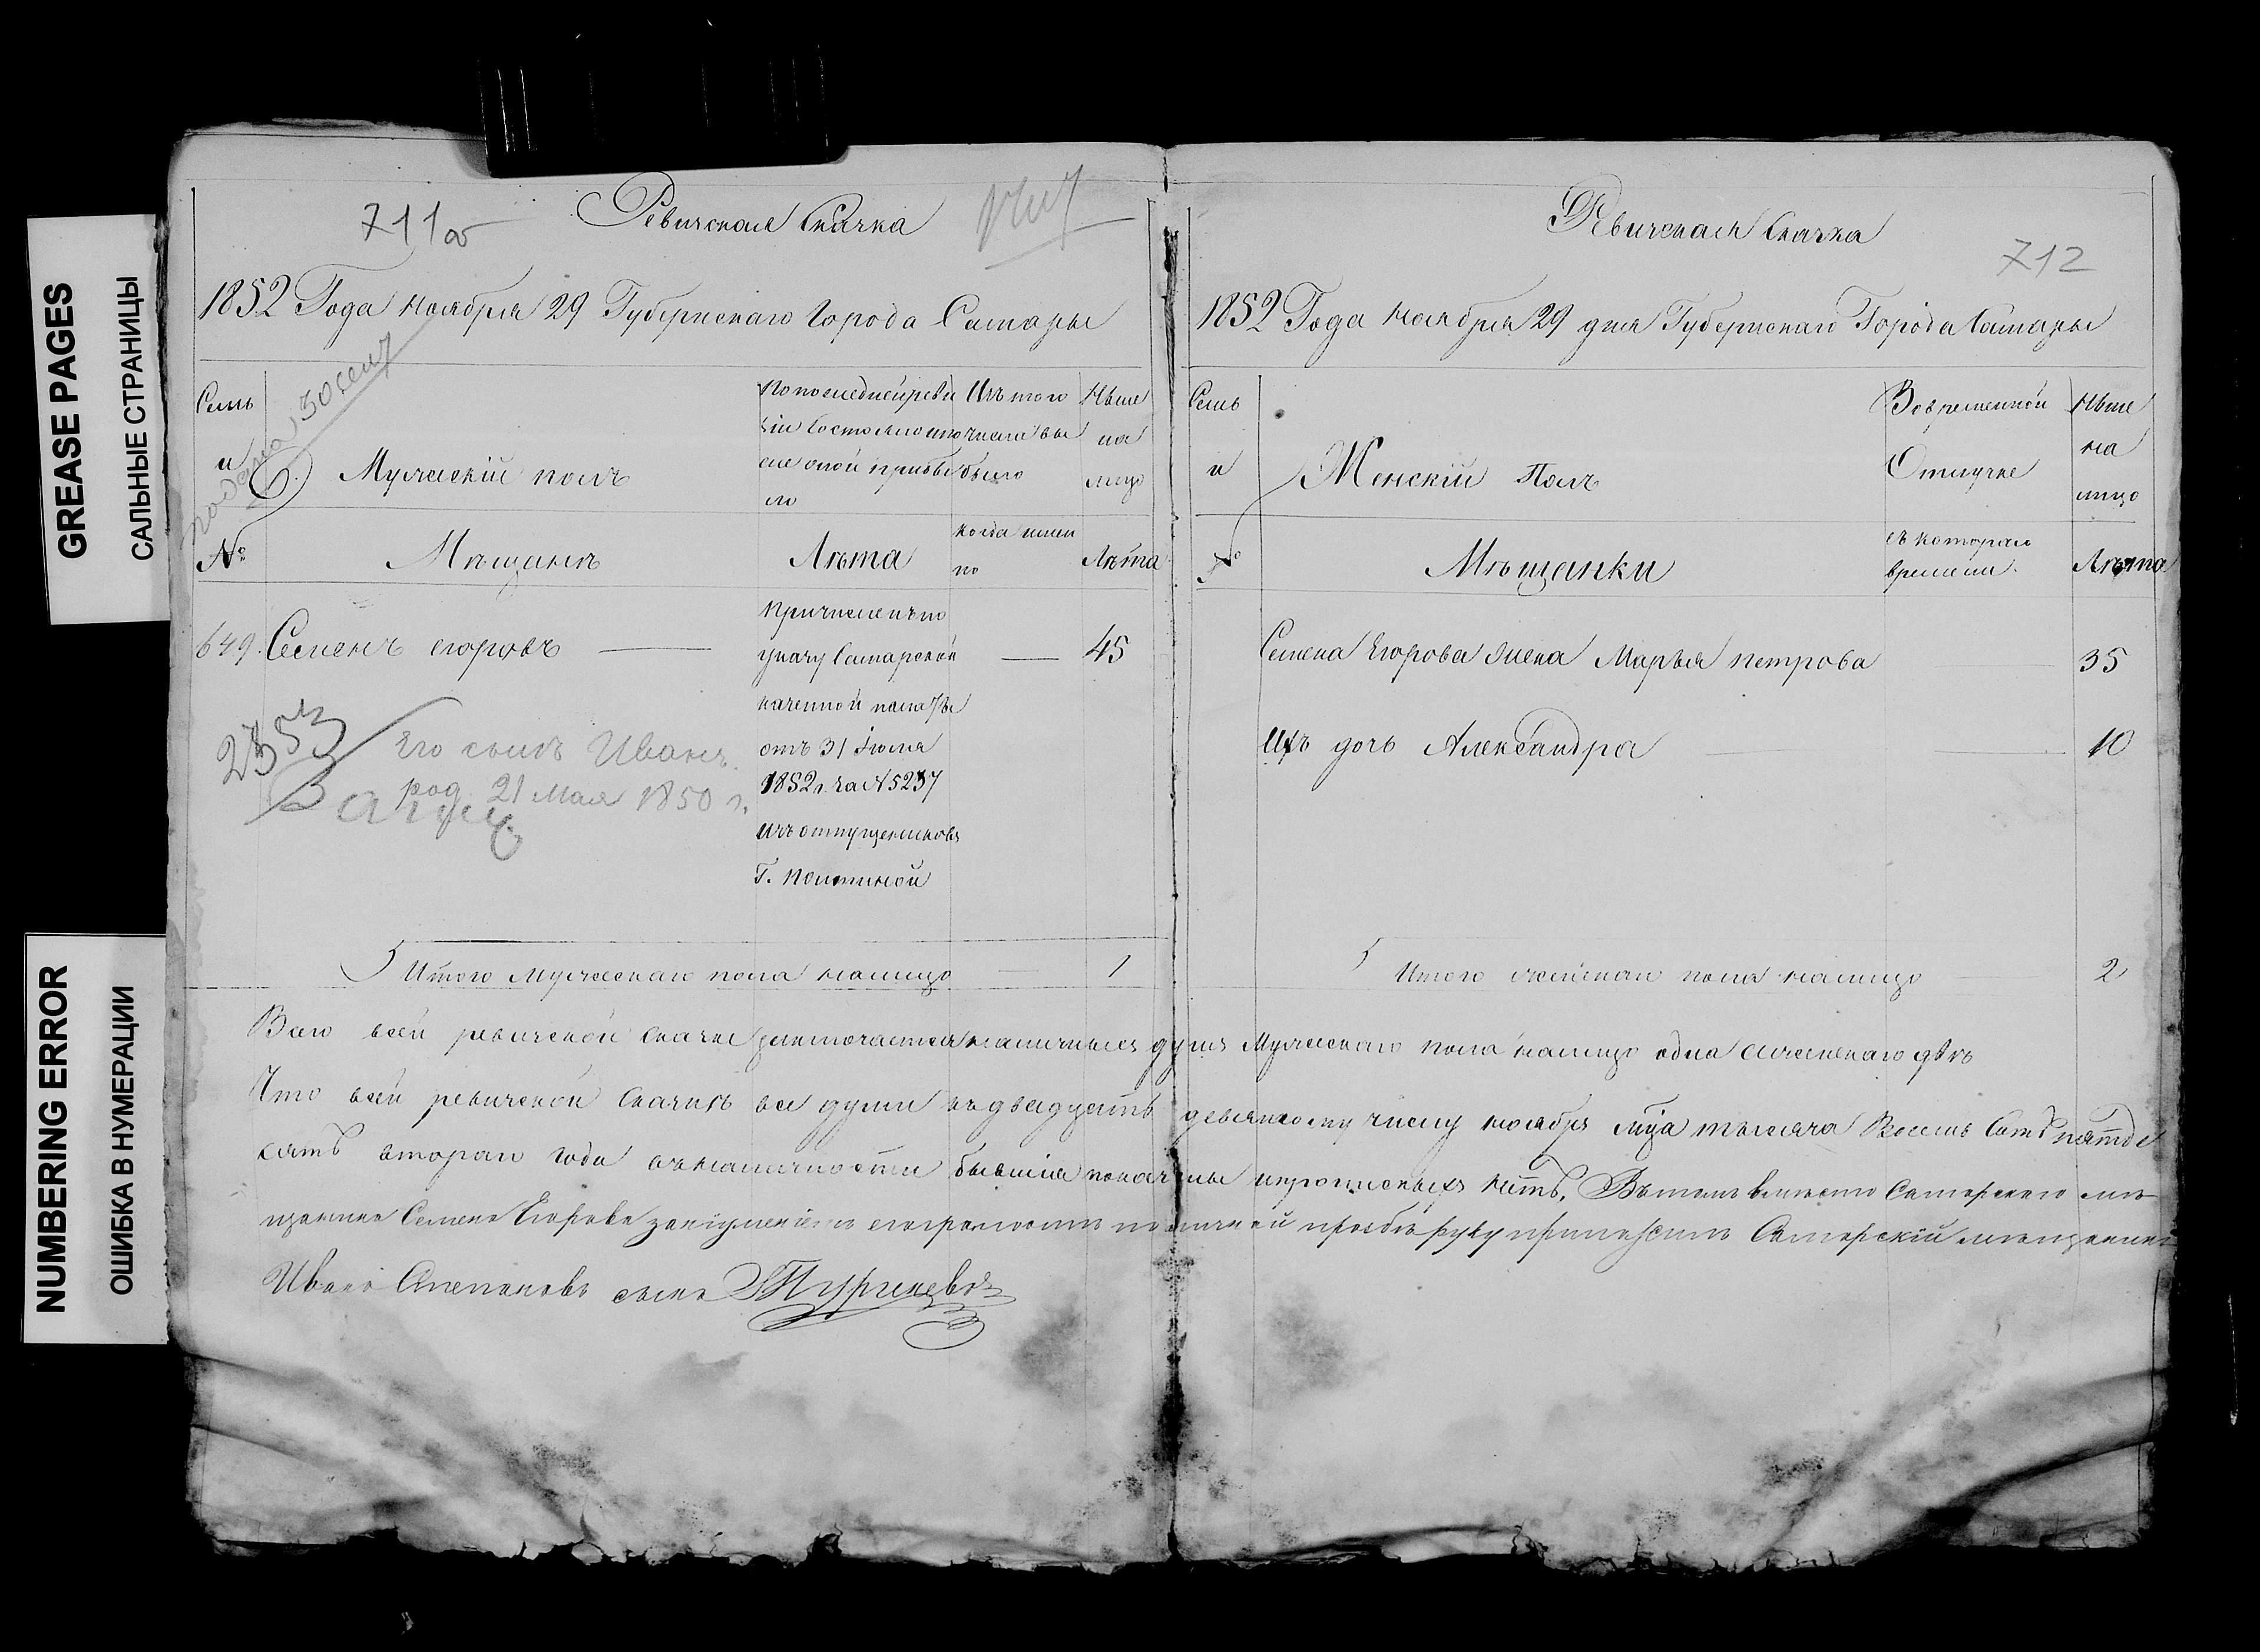 GREASE PAGES
САЛЬНЫЕ СТРАНИЦЫ
NUMBERING ERROR
ОШИБКА В НУМЕРАЦИИ
711а
Ревизская Сказка
1852 Года ноября 29 Губернскаго Города Самары
подана 30 сен
Семь
и
№
Мужескій полъ
Мѣщанъ
По последней реви
зіи состояло и по
сле оной прибы
ло
Лѣта
Изъ того
числа вы
было
когда имен
но
Ныне
на
лицо
Лѣта
649. Семенъ Егоровъ
45
Причисленъ по
указу Самарской
казенной палаты
отъ 31 Іюля
1852 г. за № 5237
изъ отпущенниковъ
Г.
2353
Его сынъ Иванъ
род. 21 Мая 1850 г.
Итого Мужескаго пола налицо 1
Ревизская Сказка
712
1852 Года Ноября 29 дня Губернскаго Города Самары
Семь
и
№
Женскій Полъ
Мѣщанки
Во временной
Отлучке
съ котораго
времени
Ныне
на
лицо
Лѣта
Семена Егорова жена Марья Петрова 35
Ихъ дочь Александра 10
Итого женскаго пола налицо 2
Всего всей ревизской сказке заключается наличныхъ душъ Мужескаго пола налицо одна а женскаго двѣ
Что всей ревизской сказкѣ все души къ двадцать девятому числу ноября мца тысяча Восемь Сотъ пятде
сятъ втораго года въ наличности бывшія показаны и прописныхъ нѣтъ, Въ томъ вместо Самарскаго мѣ
щанина Семена Егорова за неумѣніемъ его грамотѣ по личной прозбѣ руку приложилъ Самарскій мѣщанинъ
Иванъ Степановъ сынъ